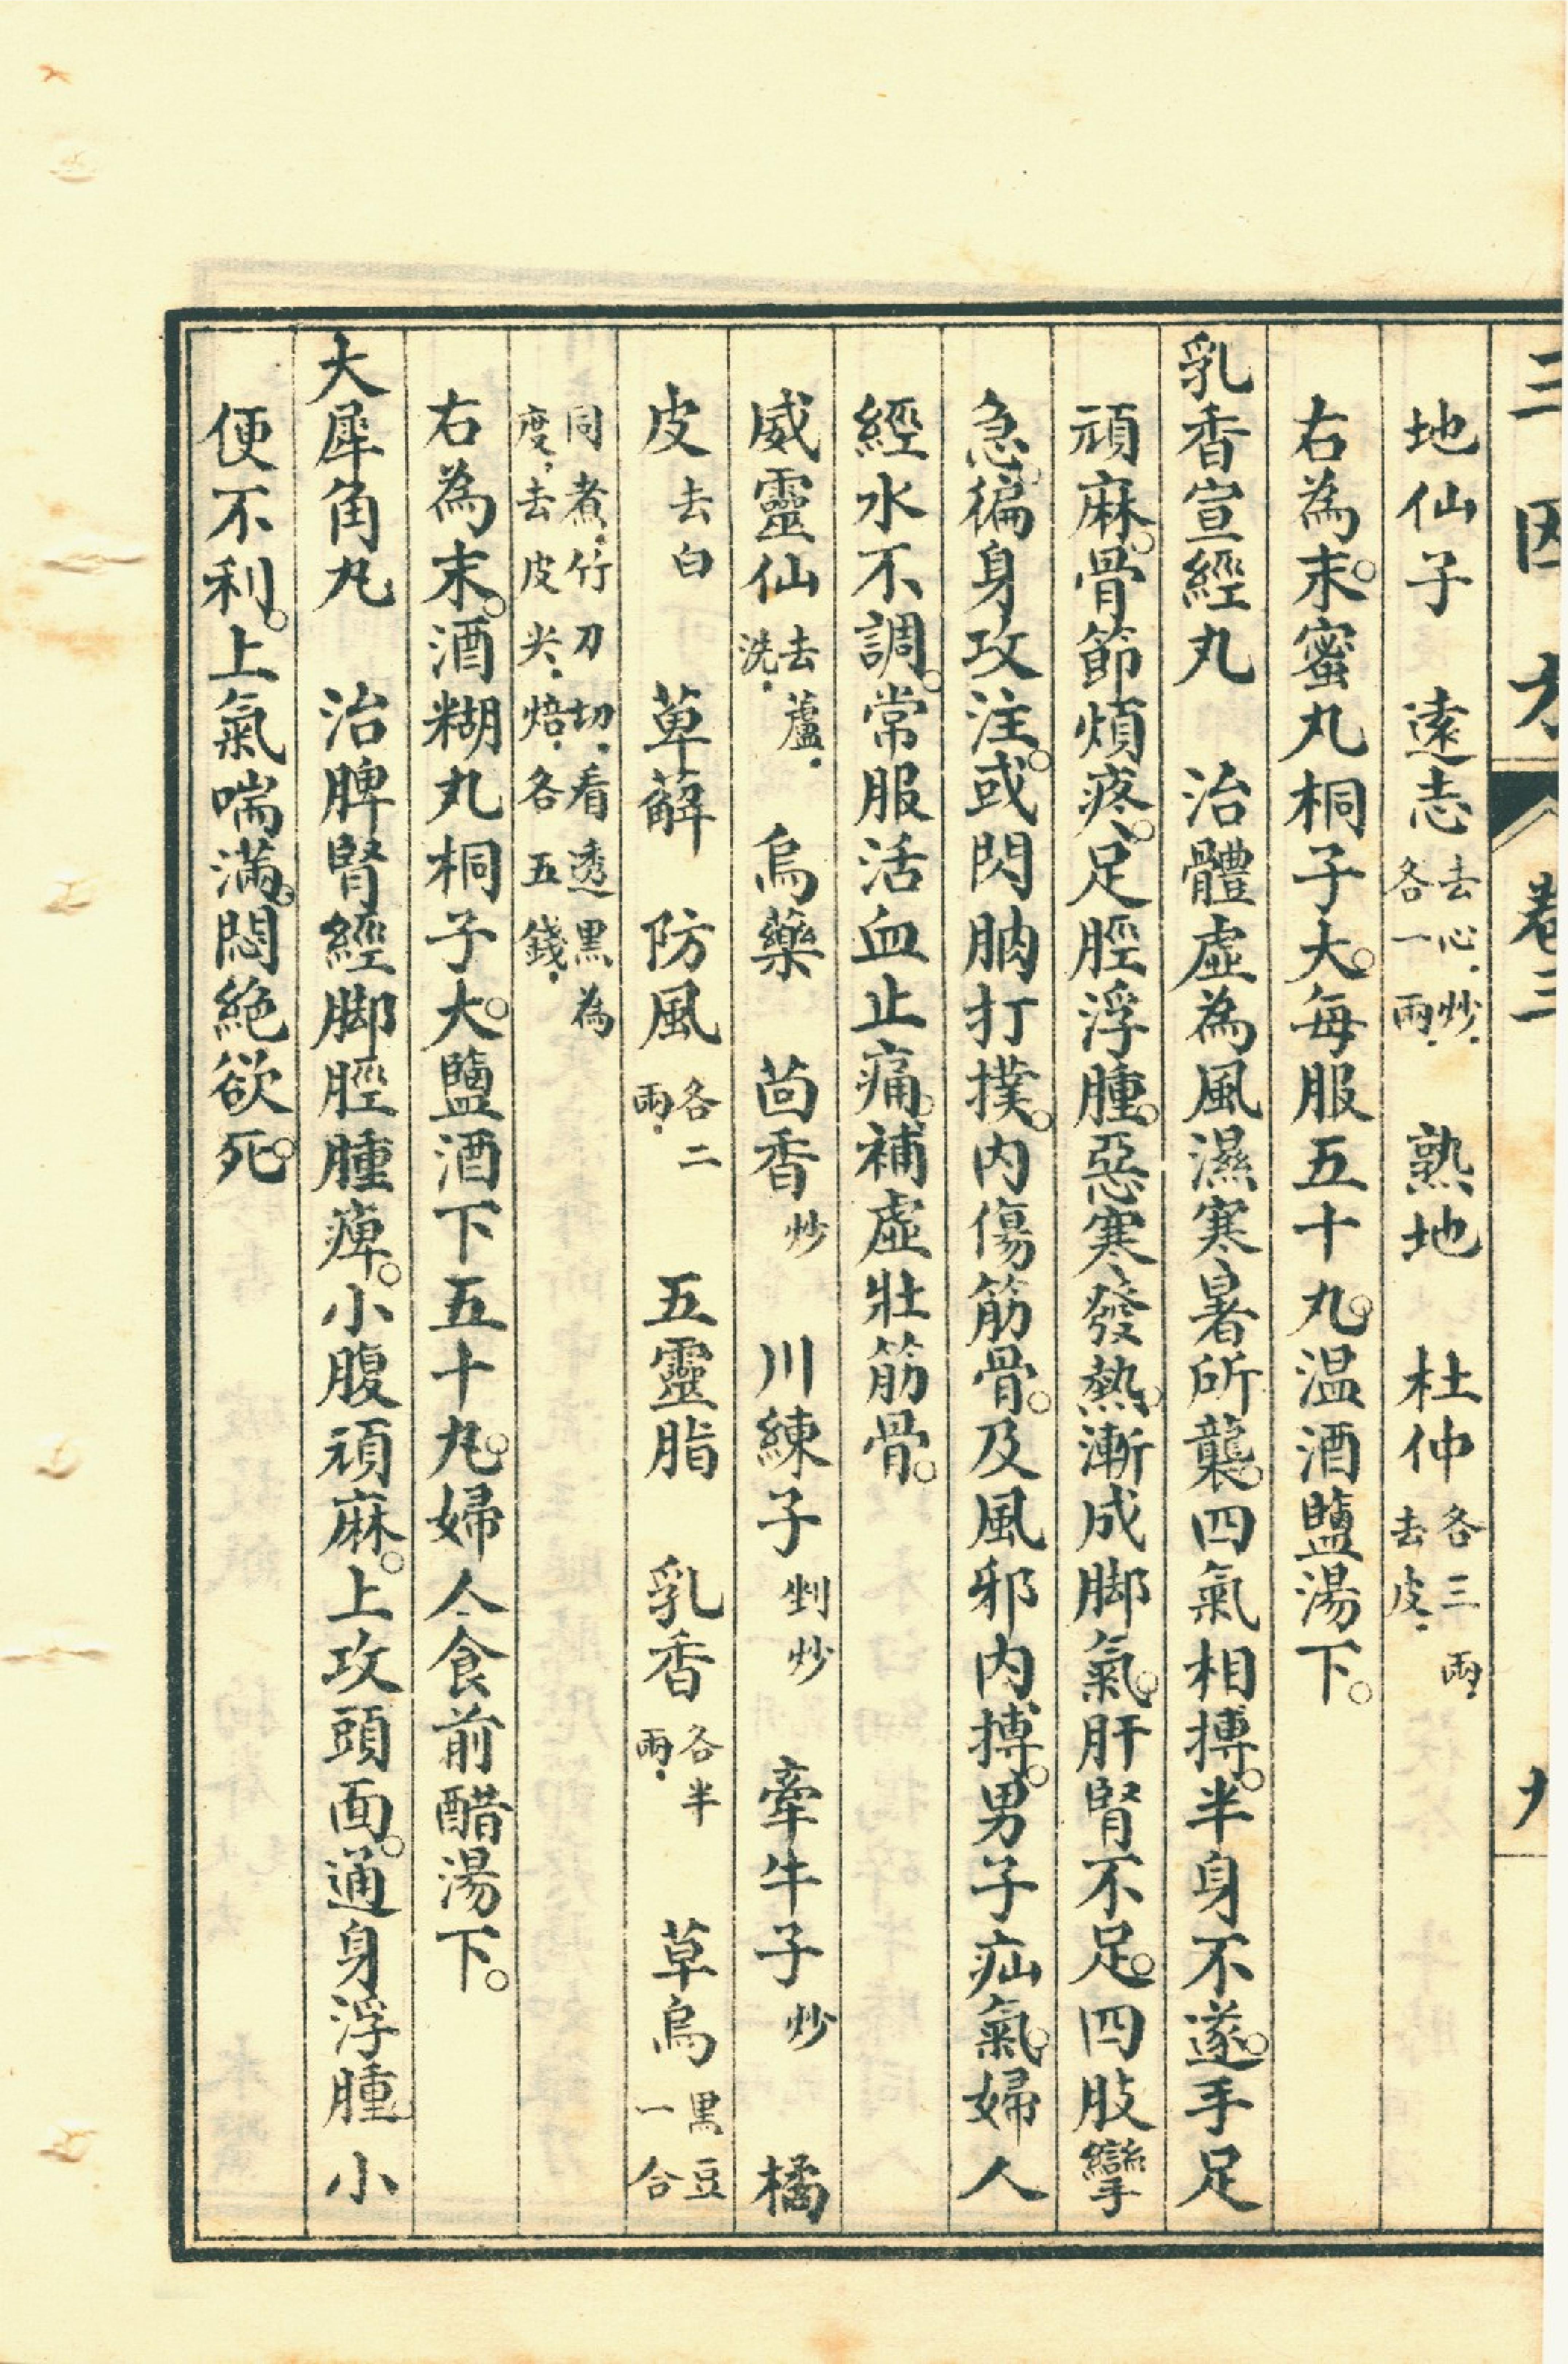 三因方 卷三 九
地仙子 遠志去心炒各一兩 熟地 杜仲各三兩去皮
右為末。蜜丸桐子大。每服五十丸。温酒鹽湯下。
乳香宣經丸 治體虛為風濕寒暑所襲。四氣相搏。半身不遂。手足
頑麻。骨節煩疼。足脛浮腫。惡寒發熱。漸成脚氣。肝腎不足。四肢攣
急。徧身攻注。或閃肭打撲。内傷筋骨。及風邪内搏。男子疝氣。婦人
經水不調。常服活血止痛。補虛壯筋骨。
威靈仙去蘆洗 烏藥 茴香炒 川練子剉炒 牽牛子炒 橘
皮去白 萆薢 防風各二兩 五靈脂 乳香各半兩 草烏黑豆一合
同煮竹刀切看透黑為度去皮尖焙各五錢
右為末。酒糊丸桐子大。鹽酒下五十丸。婦人食前醋湯下。
大犀角丸 治脾腎經脚脛腫痺。小腹頑麻。上攻頭面。通身浮腫小
便不利。上氣喘滿。悶絶欲死。